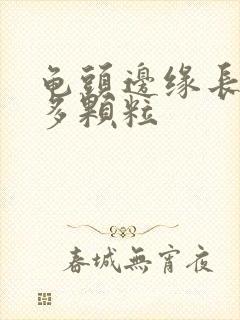 龟頭邊缘長
多顆粒
春城無宵夜